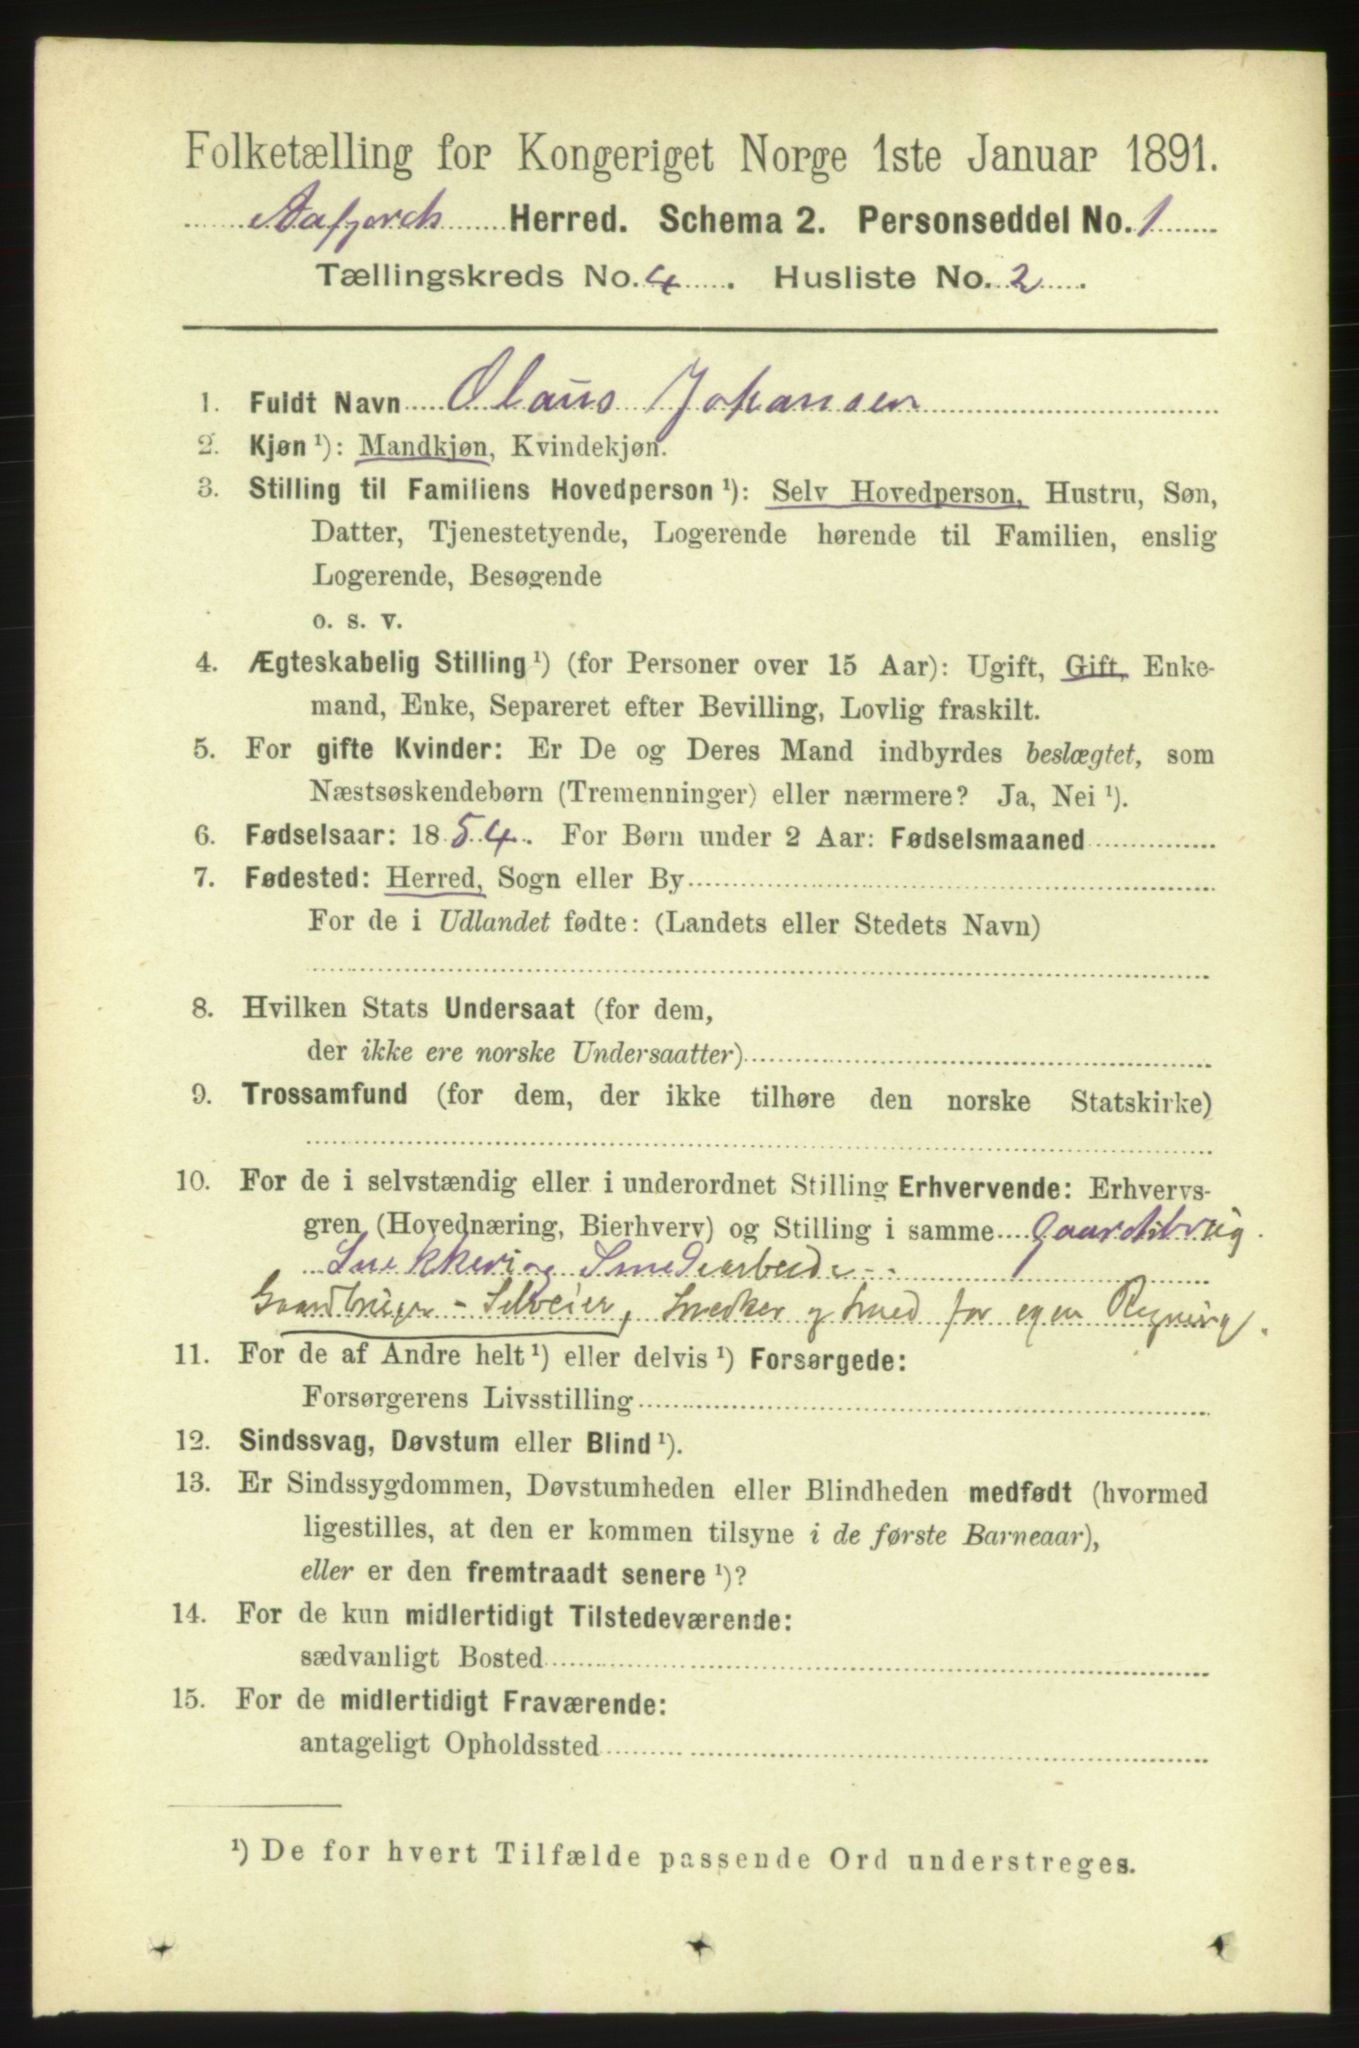 Folketælling for Kongeriget Norge 1ste Januar 1891.
Aafjord Herred. Schema 2. Personseddel No. 1
Tællingskreds No. 4. Husliste No. 2.
1. Fuldt Navn Olaus Johansen
2. Kjøn ¹): Mandkjøn, Kvindekjøn.
3. Stilling til Familiens Hovedperson ¹): Selv Hovedperson, Hustru, Søn,
Datter, Tjenestetyende, Logerende hørende til Familien, enslig
Logerende, Besøgende
o. s. v.
4. Ægteskabelig Stilling ¹) (for Personer over 15 Aar): Ugift, Gift, Enke-
mand, Enke, Separeret efter Bevilling, Lovlig fraskilt.
5. For gifte Kvinder: Er De og Deres Mand indbyrdes beslægtet, som
Næstsøskendebørn (Tremenninger) eller nærmere? Ja, Nei ¹).
6. Fødselsaar: 1854. For Børn under 2 Aar: Fødselsmaaned
7. Fødested: Herred, Sogn eller By
For de i Udlandet fødte: (Landets eller Stedets Navn)
8. Hvilken Stats Undersaat (for dem,
der ikke ere norske Undersaatter)
9. Trossamfund (for dem, der ikke tilhøre den norske Statskirke)
10. For de i selvstændig eller i underordnet Stilling Erhvervende: Erhvervs-
gren (Hovednæring, Bierhverv) og Stilling i samme Gaardsbrug
Snekker og Smedearbeide
Gaardbruger - Selveier, Snedker og Smed for egen Regning.
11. For de af Andre helt ¹) eller delvis ¹) Forsørgede:
Forsørgerens Livsstilling
12. Sindssvag, Døvstum eller Blind ¹).
13. Er Sindssygdommen, Døvstumheden eller Blindheden medfødt (hvormed
ligestilles, at den er kommen tilsyne i de første Barneaar),
eller er den fremtraadt senere ¹)?
14. For de kun midlertidigt Tilstedeværende:
sædvanligt Bosted
15. For de midlertidigt Fraværende:
antageligt Opholdssted
¹) De for hvert Tilfælde passende Ord understreges.